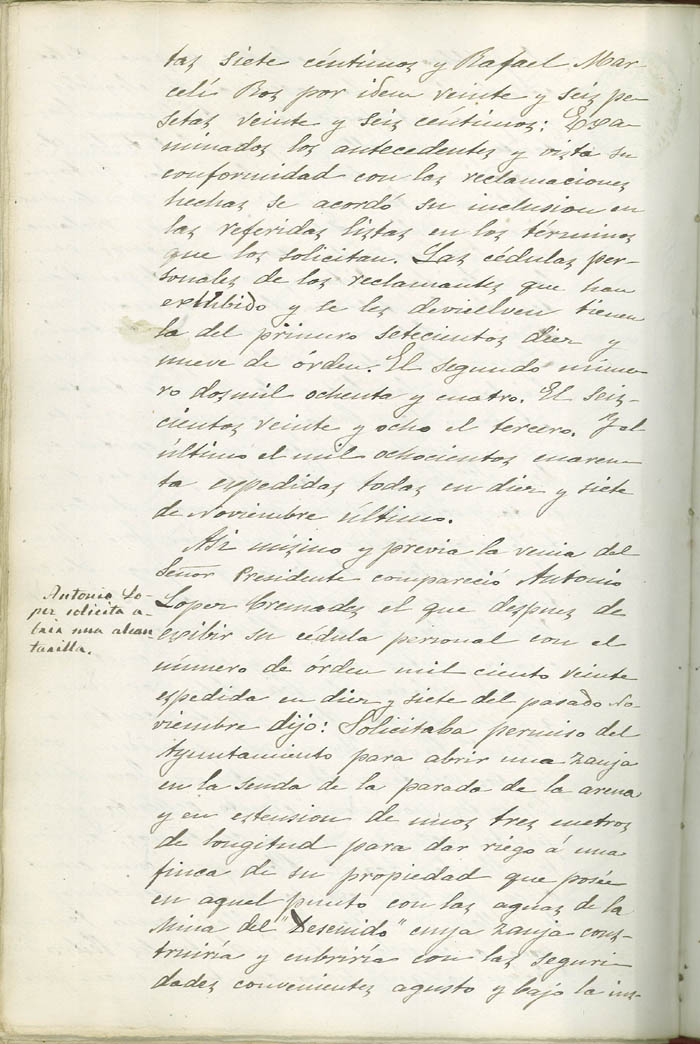 tas siete céntimos y Rafael Mar-
celí Ros por idem veinte y seis pe-
setas veinte y seis centimos: Exa-
minados los antecedentes y vista su
conformidad con las reclamaciones
hechas se acordó su inclusion en
las referidas listas en los términos
que los solicitan. Las cédulas per-
sonales de los reclamantes que han
exhibido y se les devuelven tienen
la del primero setecientos diez y
nueve de órden. El segundo núme-
ro dos mil ochenta y cuatro. El seis-
cientos veinte y ocho el tercero. Y el
último el mil ochocientos cuaren-
ta espedidas todas en diez y siete
de Noviembre último.
Asi mismo y previa la venia del
Señor Presidente compareció Antonio
Lopez Cremades el que despues de
exibir su cédula personal con el
número de órden mil ciento veinte
espedida en diez y siete del pasado No-
viembre dijo: Solicitaba permiso del
Ayuntamiento para abrir una zanja
en la senda de la parada de la arena
y en estension de unos tres metros
de longitud para dar riego á una
finca de su propiedad que posée
en aquel punto con las aguas de la
Mina del "Descuido" cuya zanja cons-
truiría y cubriría con las seguri-
dades convenientes agusto y bajo la ins-
Antonio Lo-
pez solicita a-
brir una alcan-
tarilla.